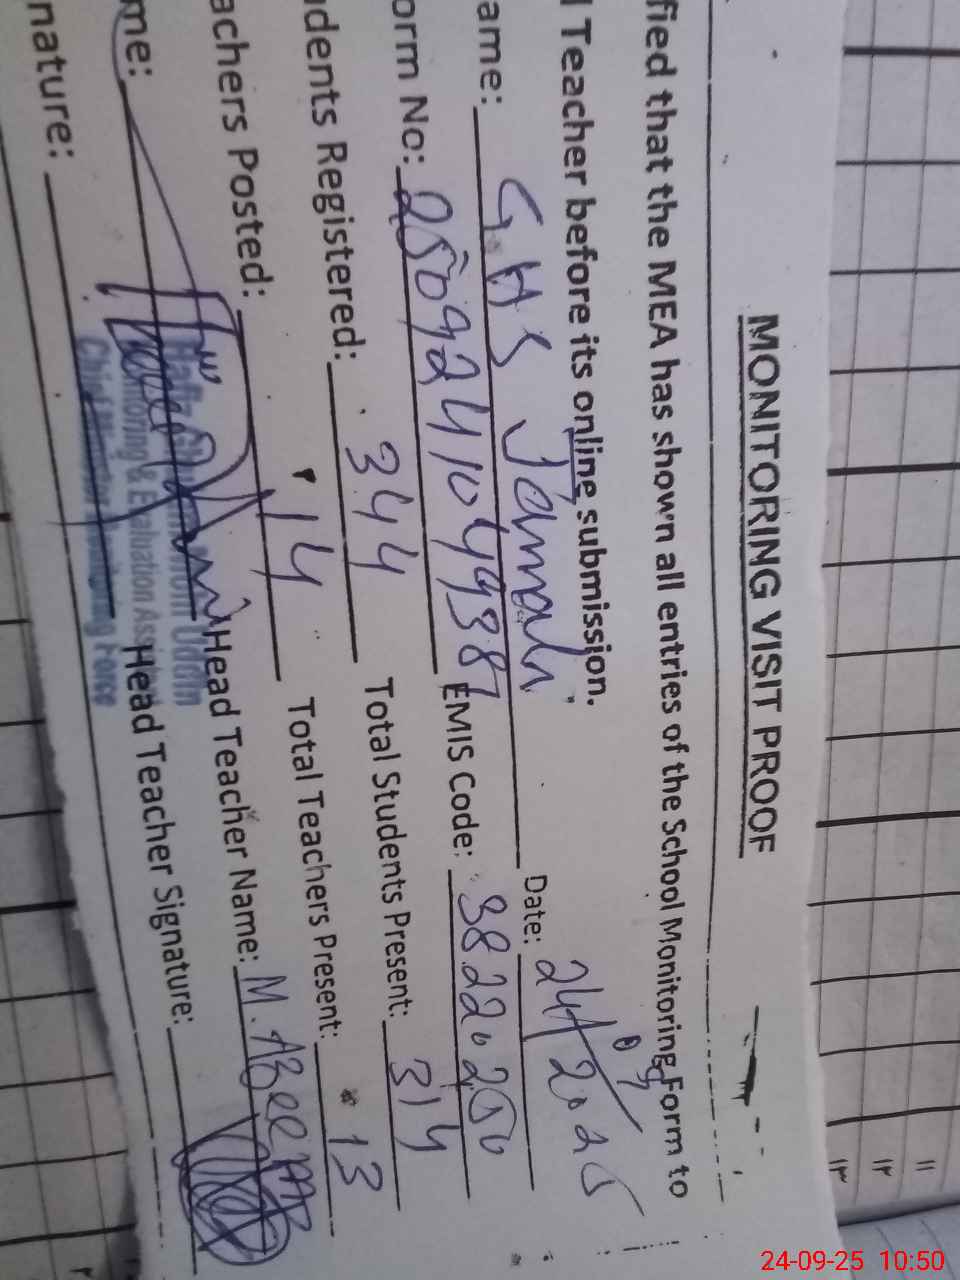 MONITORING VISIT PROOF
fied that the MEA has shown all entries of the School Monitoring Form to
Teacher before its online submission.
ame: GHS Jamali Date: 24/09/2025
orm No: 25092410498 EMIS Code: 38220250
dents Registered: 344 Total Students Present: 314
achers Posted: 14 Total Teachers Present: 13
me: Head Teacher Name: M. Azeem
Monitoring & Evaluation Assistant
Chief Minister Monitoring Force
nature: Head Teacher Signature:
۱۱
۱۲
۱۳
24-09-25 10:50